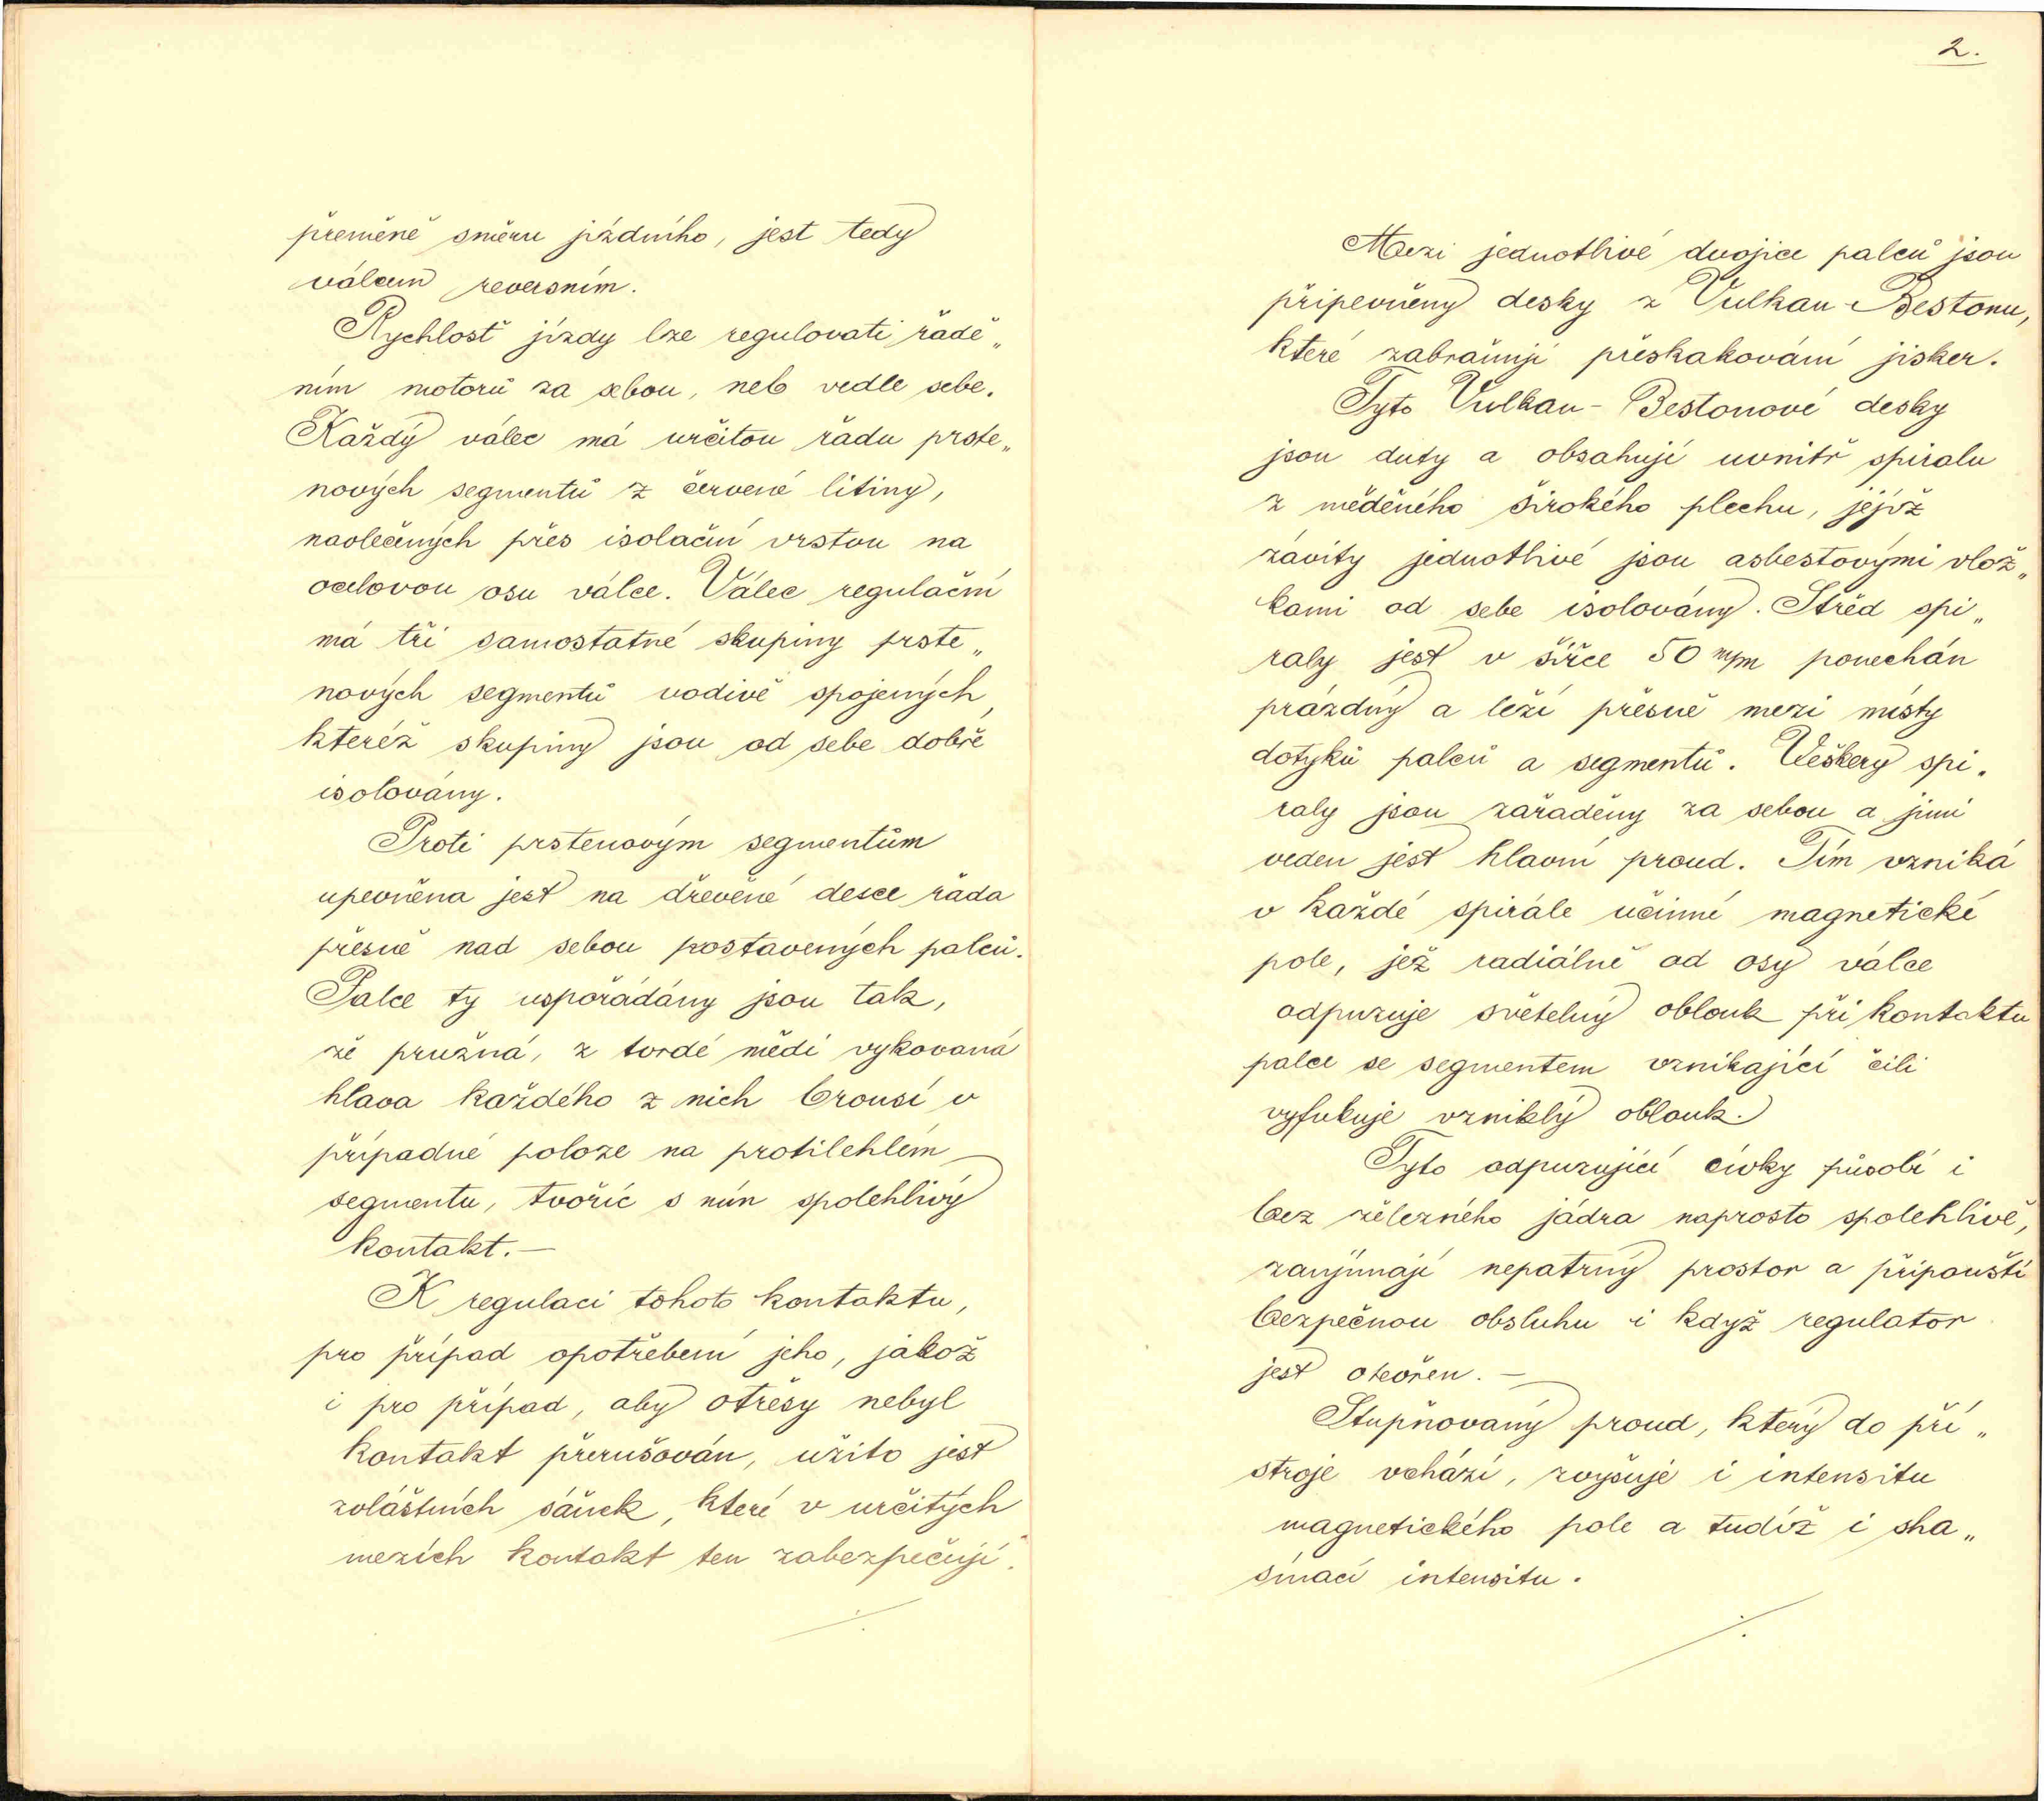 přeměně směru jízdního, jest tedy
válcem reversním.
Rychlost jízdy lze regulovati řadě„
ním motorů za sebou, neb vedle sebe.
Každý válec má určitou řadu prste„
nových segmentů z červené litiny,
navlečených přes isolační vrstvu na
ocelovou osu válce. Válec regulační
má tři samostatné skupiny prste„
nových segmentů vodivě spojených,
kteréž skupiny jsou od sebe dobře
isolovány.
Proti prstenovým segmentům
upevněna jest na dřevěné desce řada
přesně nad sebou postavených palců.
Palce ty uspořádány jsou tak,
že pružná, z tvrdé mědi vykovaná
hlava každého z nich brousí v
případné poloze na protilehlém
segmentu, tvoříc s ním spolehlivý
kontakt.—
K regulaci tohoto kontaktu,
pro případ opotřebení jeho, jakož
i pro případ, aby otřesy nebyl
kontakt přerušován, užito jest
zvláštních sáněk, které v určitých
mezích kontakt ten zabezpečují.
2.
Mezi jednotlivé dvojice palců jsou
připevněny desky z Vulkan-Bestonu,
které zabraňují přeskakování jisker.
Tyto Vulkan-Bestonové desky
jsou duty a obsahují uvnitř spiralu
z měděného širokého plechu, jejíž
závity jednotlivé jsou asbestovými vlož„
kami od sebe isolovány. Střed spi„
raly jest v šířce 50 m/m ponechán
prázdný a leží přesně mezi místy
dotyků palců a segmentů. Veškery spi„
raly jsou zařaděny za sebou a jimi
veden jest hlavní proud. Tím vzniká
v každé spirále účinné magnetické
pole, jež radiálně od osy válce
odpuzuje světelný oblouk při kontaktu
palce se segmentem vznikající čili
vyfukuje vzniklý oblouk.
Tyto odpuzující cívky působí i
bez železného jádra naprosto spolehlivě,
zaujímají nepatrný prostor a připouští
bezpečnou obsluhu i když regulator
jest otevřen.—
Stupňovaný proud, který do pří„
stroje vchází, zvyšuje i intensitu
magnetického pole a tudíž i sha„
šínací intensitu.